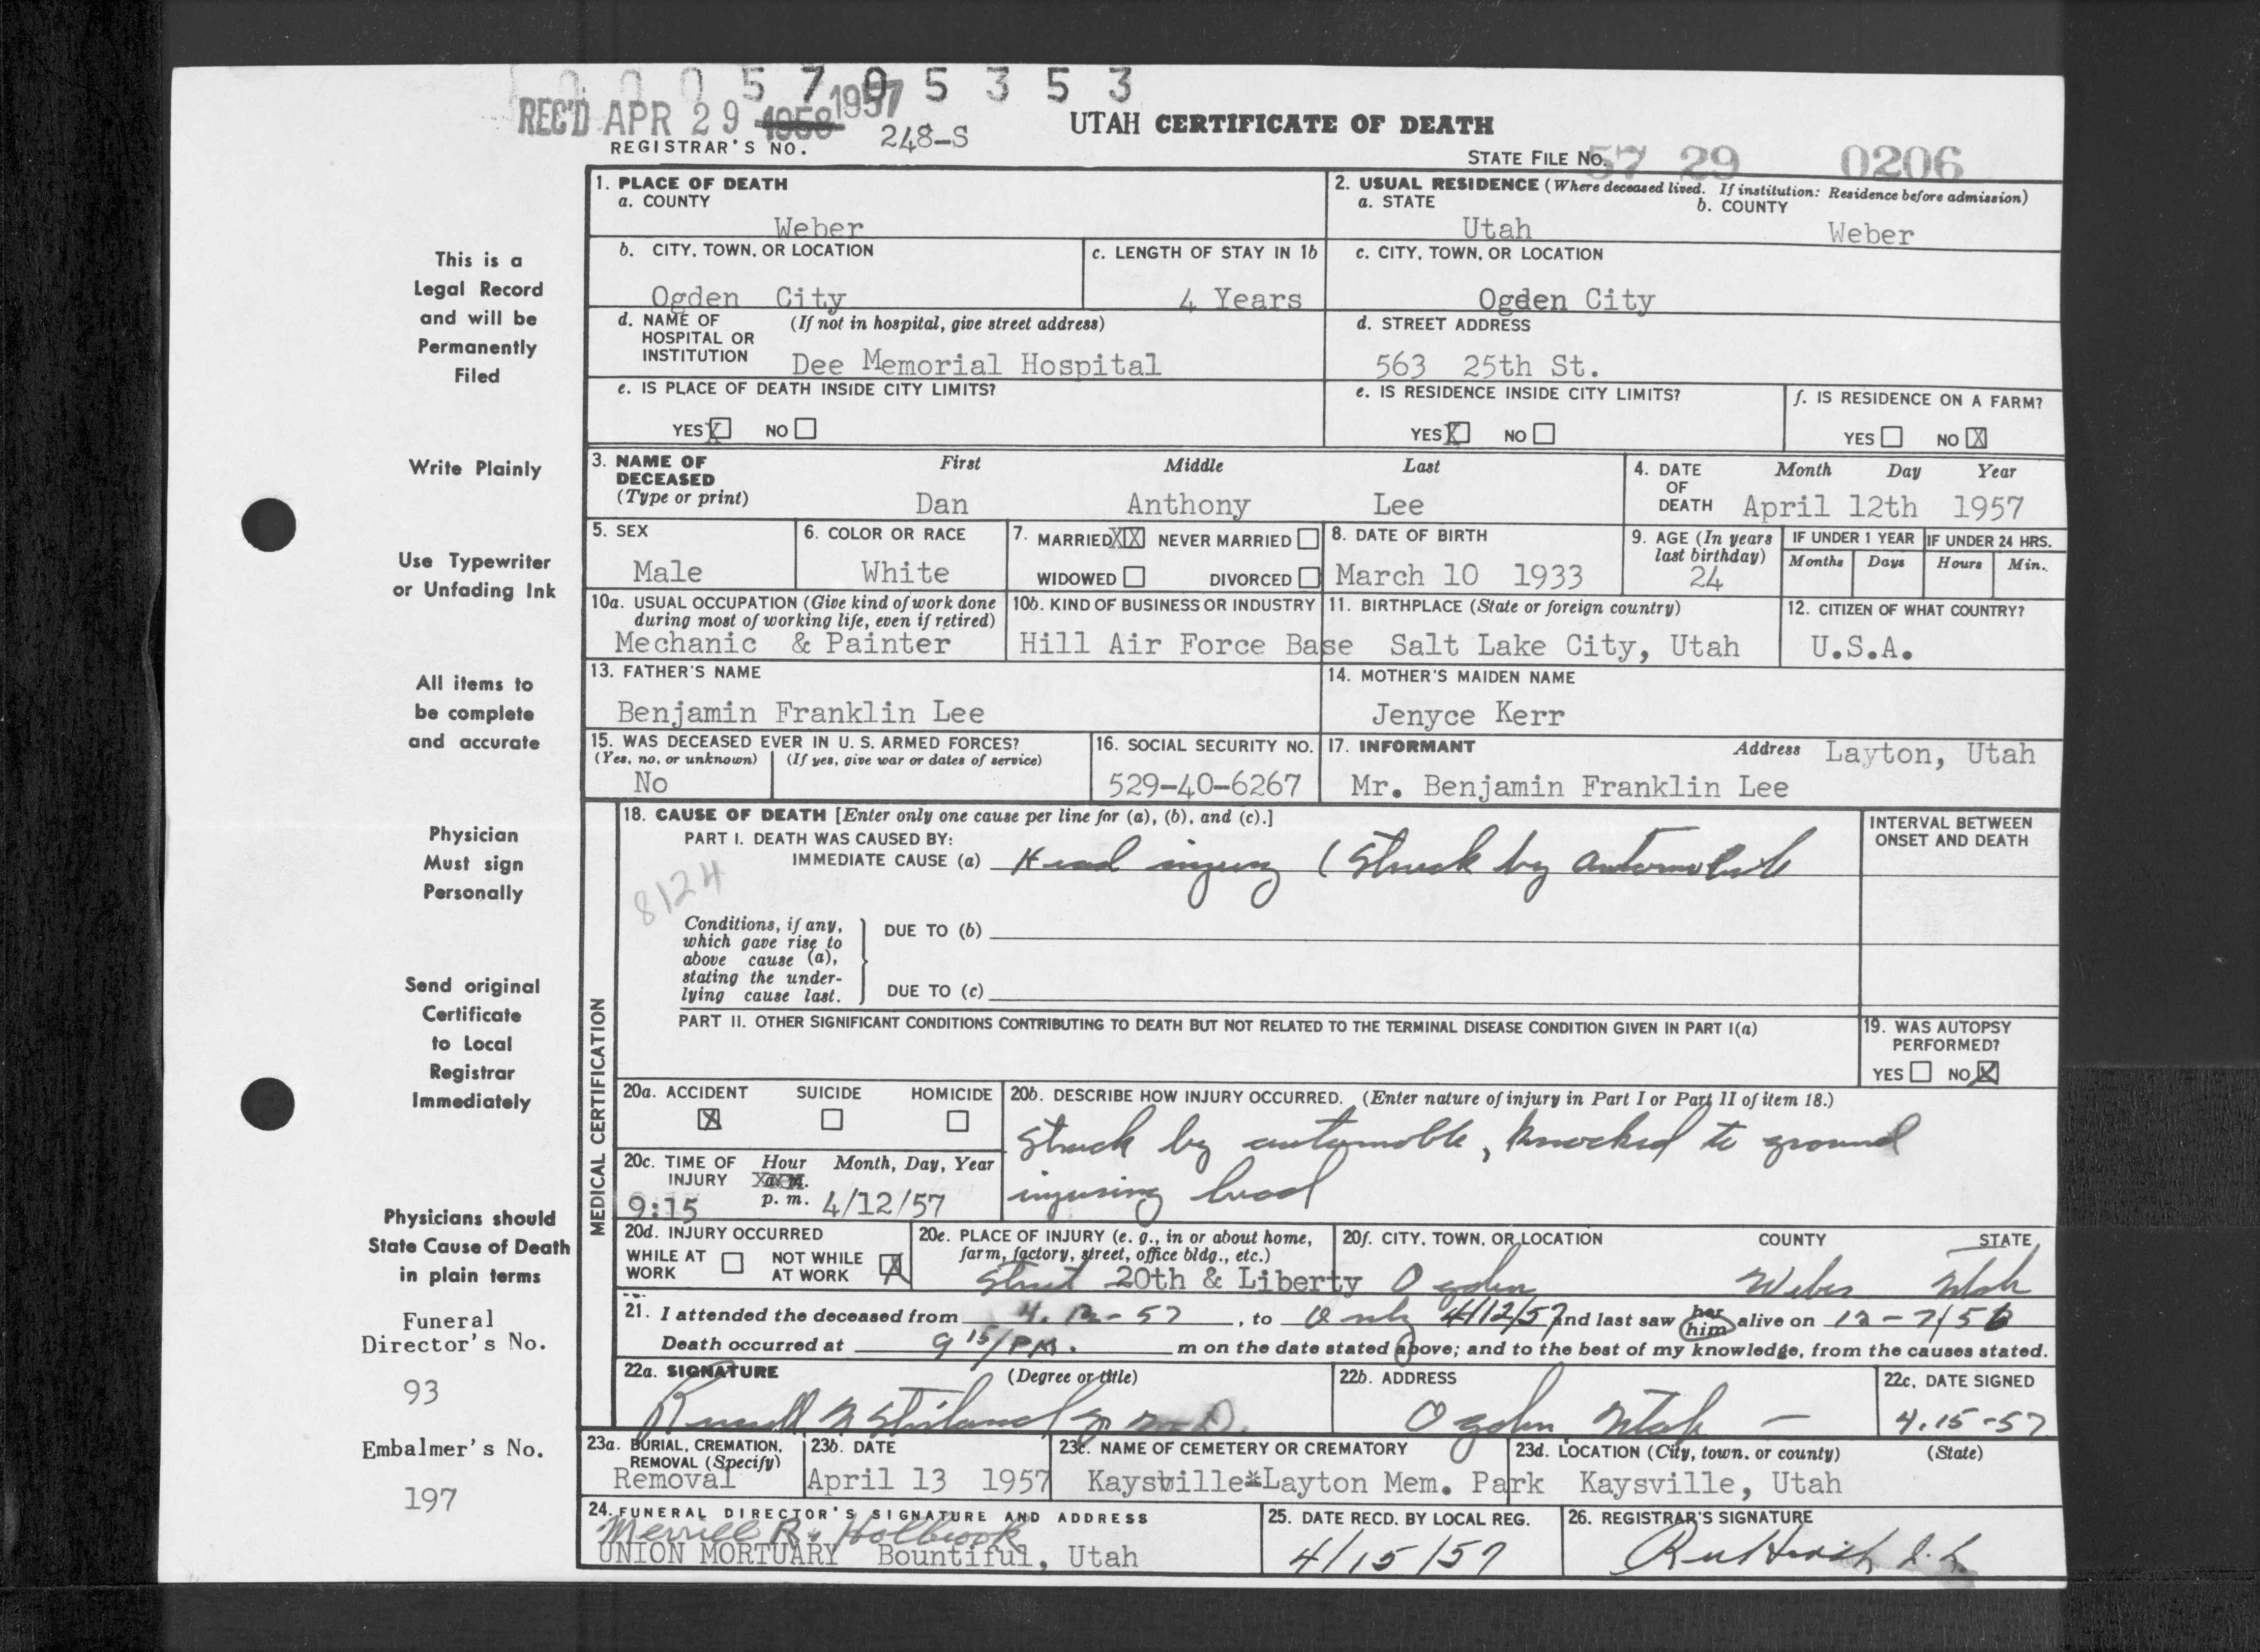 0 0 0 5 7 0 5 3 5 3
REC'D APR 29 1958 1957
REGISTRAR'S NO. 248-S
UTAH CERTIFICATE OF DEATH
STATE FILE No. 57 29 0206
This is a
Legal Record
and will be
Permanently
Filed
Write Plainly
Use Typewriter
or Unfading Ink
All items to
be complete
and accurate
Physician
Must sign
Personally
Send original
Certificate
to Local
Registrar
Immediately
Physicians should
State Cause of Death
in plain terms
Funeral
Director's No.
93
Embalmer's No.
197
1. PLACE OF DEATH
a. COUNTY
Weber
2. USUAL RESIDENCE (Where deceased lived. If institution: Residence before admission)
a. STATE b. COUNTY
Utah Weber
b. CITY, TOWN, OR LOCATION
Ogden City
c. LENGTH OF STAY IN 1b
4 Years
c. CITY, TOWN, OR LOCATION
Ogden City
d. NAME OF (If not in hospital, give street address)
HOSPITAL OR
INSTITUTION Dee Memorial Hospital
d. STREET ADDRESS
563 25th St.
e. IS PLACE OF DEATH INSIDE CITY LIMITS?
YES X NO
e. IS RESIDENCE INSIDE CITY LIMITS?
YES X NO
f. IS RESIDENCE ON A FARM?
YES NO X
3. NAME OF First Middle Last
DECEASED
(Type or print) Dan Anthony Lee
4. DATE Month Day Year
OF
DEATH April 12th 1957
5. SEX
Male
6. COLOR OR RACE
White
7. MARRIED XX NEVER MARRIED
WIDOWED DIVORCED
8. DATE OF BIRTH
March 10 1933
9. AGE (In years
last birthday)
24
IF UNDER 1 YEAR IF UNDER 24 HRS.
Months Days Hours Min.
10a. USUAL OCCUPATION (Give kind of work done
during most of working life, even if retired)
Mechanic & Painter
10b. KIND OF BUSINESS OR INDUSTRY
Hill Air Force Base
11. BIRTHPLACE (State or foreign country)
Salt Lake City, Utah
12. CITIZEN OF WHAT COUNTRY?
U.S.A.
13. FATHER'S NAME
Benjamin Franklin Lee
14. MOTHER'S MAIDEN NAME
Jenyce Kerr
15. WAS DECEASED EVER IN U. S. ARMED FORCES?
(Yes, no, or unknown) (If yes, give war or dates of service)
No
16. SOCIAL SECURITY NO.
529-40-6267
17. INFORMANT Address Layton, Utah
Mr. Benjamin Franklin Lee
MEDICAL CERTIFICATION
18. CAUSE OF DEATH [Enter only one cause per line for (a), (b), and (c).]
PART I. DEATH WAS CAUSED BY:
IMMEDIATE CAUSE (a) Head injury (Struck by automobile
8124
Conditions, if any,
which gave rise to
above cause (a),
stating the under-
lying cause last.
DUE TO (b)
DUE TO (c)
INTERVAL BETWEEN
ONSET AND DEATH
PART II. OTHER SIGNIFICANT CONDITIONS CONTRIBUTING TO DEATH BUT NOT RELATED TO THE TERMINAL DISEASE CONDITION GIVEN IN PART I(a)
19. WAS AUTOPSY
PERFORMED?
YES NO X
20a. ACCIDENT SUICIDE HOMICIDE
X
20b. DESCRIBE HOW INJURY OCCURRED. (Enter nature of injury in Part I or Part II of item 18.)
Struck by automoble, knocked to ground
injuring head
20c. TIME OF Hour Month, Day, Year
INJURY a. m.
9:15 p. m. 4/12/57
20d. INJURY OCCURRED
WHILE AT NOT WHILE
WORK AT WORK X
20e. PLACE OF INJURY (e. g., in or about home,
farm, factory, street, office bldg., etc.)
Street 20th & Liberty
20f. CITY, TOWN, OR LOCATION COUNTY STATE
Ogden Weber Utah
21. I attended the deceased from 4-12-57, to Only 4/12/57 and last saw her him alive on 12-7/56
Death occurred at 9 15/PM. m on the date stated above; and to the best of my knowledge, from the causes stated.
22a. SIGNATURE (Degree or title)
M.D.
22b. ADDRESS
Ogden Utah
22c. DATE SIGNED
4.15-57
23a. BURIAL, CREMATION,
REMOVAL (Specify)
Removal
23b. DATE
April 13 1957
23c. NAME OF CEMETERY OR CREMATORY
Kaysville*Layton Mem. Park
23d. LOCATION (City, town, or county) (State)
Kaysville, Utah
24. FUNERAL DIRECTOR'S SIGNATURE AND ADDRESS
Merrill R. Holbrook
UNION MORTUARY Bountiful, Utah
25. DATE RECD. BY LOCAL REG.
4/15/57
26. REGISTRAR'S SIGNATURE